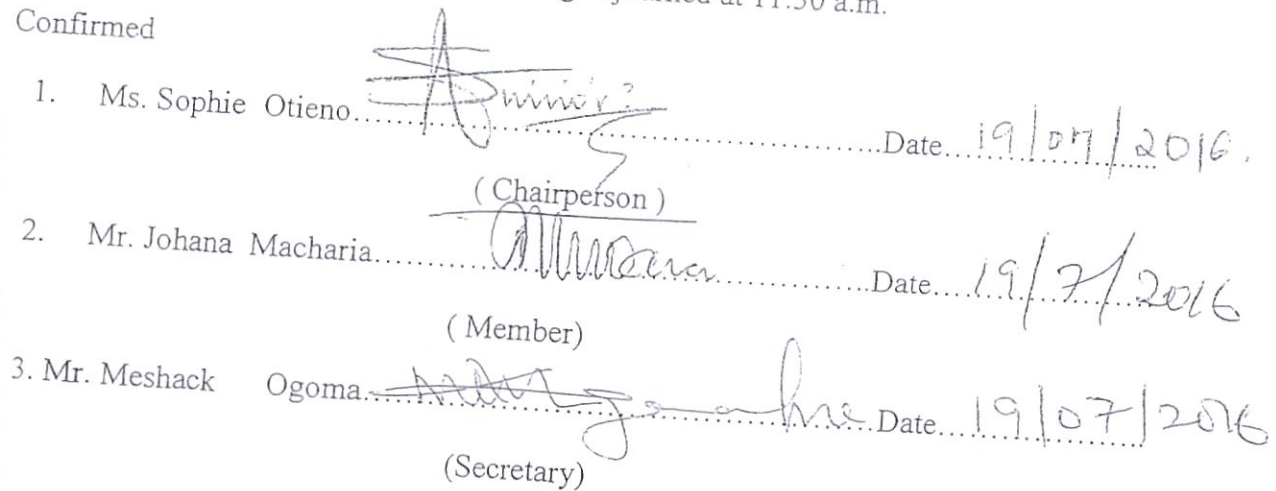 at 11:30 a.m.
Confirmed
1. Ms. Sophie Otieno.....................Date...19/07/2016.
( Chairperson )
2. Mr. Johana Macharia.....................Date...19/7/2016
( Member)
3. Mr. Meshack Ogoma.....................Date...19/07/2016
(Secretary)